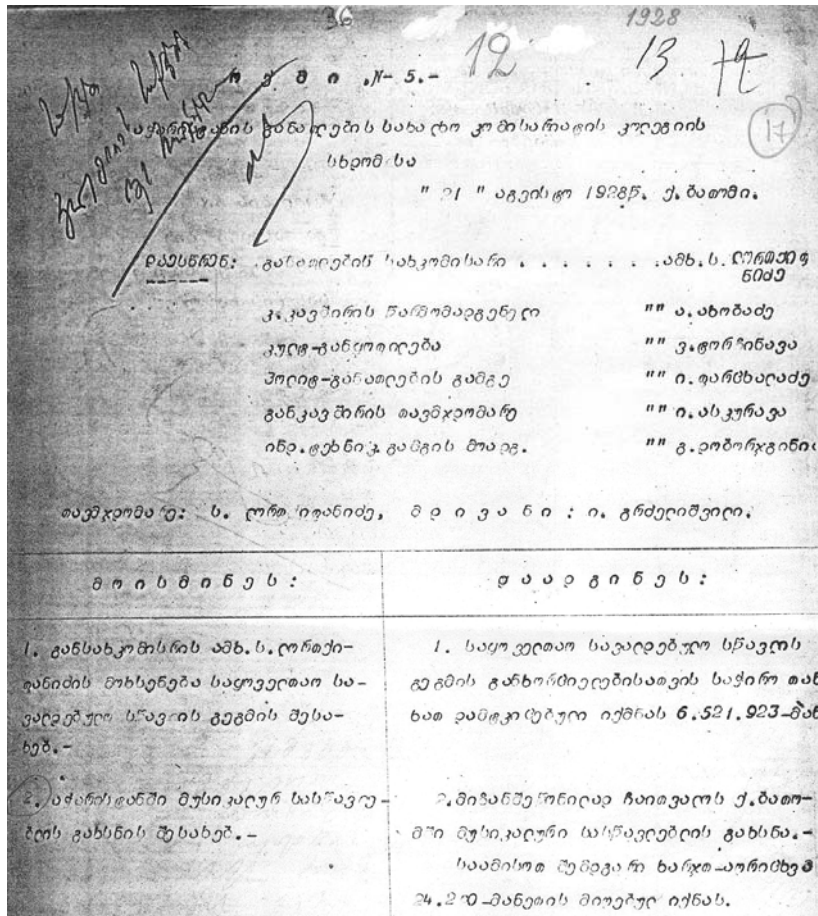 36 1928
12 13
ო ქ მ ი .N- 5.-
აჭარისტანის განათლების სახალხო კომისარიატის კოლეგიის
17
სხდომისა
" 21 " აგვისტო 1928წ. ქ.ბათომი.
დაესწრენ: განათლების სახკომისარი . . . . . . .ამხ.ს. ლორთქიფ
ნიძე
კ.კავშირის წარმომადგენელი "" ა.ახობაძე
კულტ-განყოფილება "" ვ.ტორჩინავა
პოლიტ-განათლების გამგე "" ი.თარცხალაძე
განკავშირის თავმჯდომარე "" ი.ასკურავა
ინდ.ტეხნიკ.გამგის მოადგ. "" გ.დობორჯგინი
თავმჯდომარე: ს. ლორთქიფანიძე, მ დ ი ვ ა ნ ი : ი. გრძელიშვილი.
მ ო ი ს მ ი ნ ე ს :
1. განსახკომისრის ამხ.ს.ლორთქი-
ფანიძის მოხსენება საყოველთაო სა-
ვალდებულო სწავლის გეგმის შესა-
ხებ.-
2. აჭარისტანში მუსიკალურ სასწავლე-
ბლის გახსნის შესახებ.-
დ ა ა დ გ ი ნ ე ს :
1. საყოველთაო სავალდებულო სწავლის
გეგმის განხორციელებისათვის საჭირო თან
ხათ დამტკიცებული იქმნას 6.521.923-მან
2.მიზანშეწონილად ჩაითვალოს ქ.ბათო-
მში მუსიკალური სასწავლებლის გახსნა.-
საამისოთ შემდგარი ხარჯთ-აღრიცხვა
-მანეთის მიღებულ იქნას.